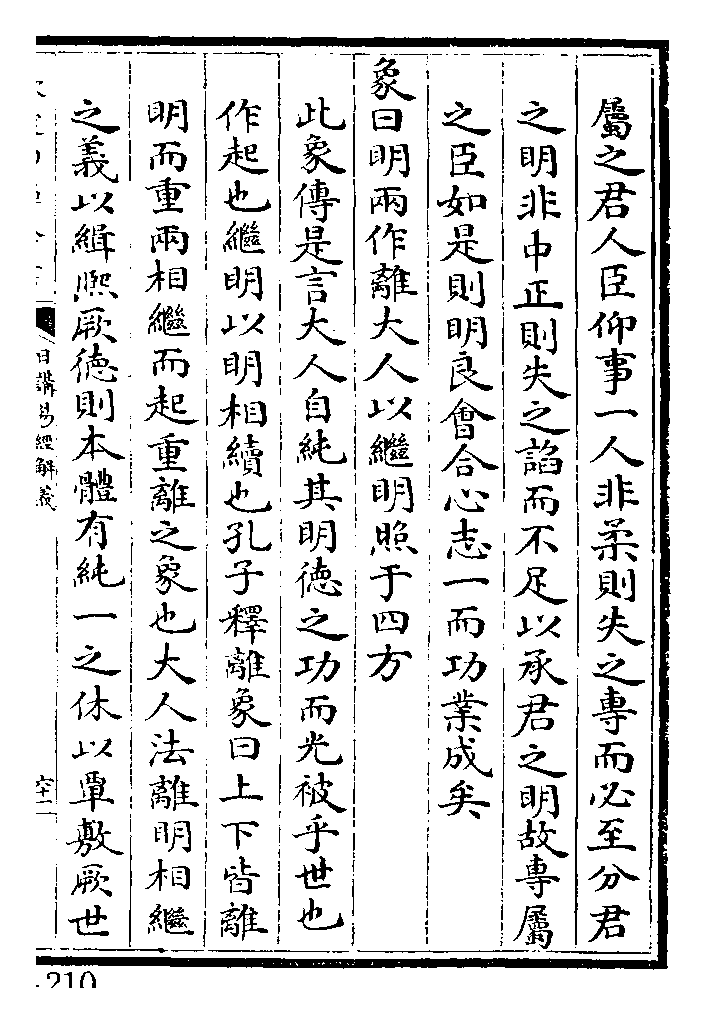 屬之君人臣仰事一人非柔則失之專而必至分君
之明非中正則失之諂而不足以承君之明故專屬
之臣如是則明良會合心志一而功業成矣
象曰明兩作離大人以繼明照于四方
此象傳是言大人自純其明德之功而光被乎世也
作起也繼明以明相續也孔子釋離象曰上下皆離
明而重兩相繼而起重離之象也大人法離明相繼
之義以緝熈厥德則本體有純一之休以覃敷厥世
日講易經解義
六十二
210